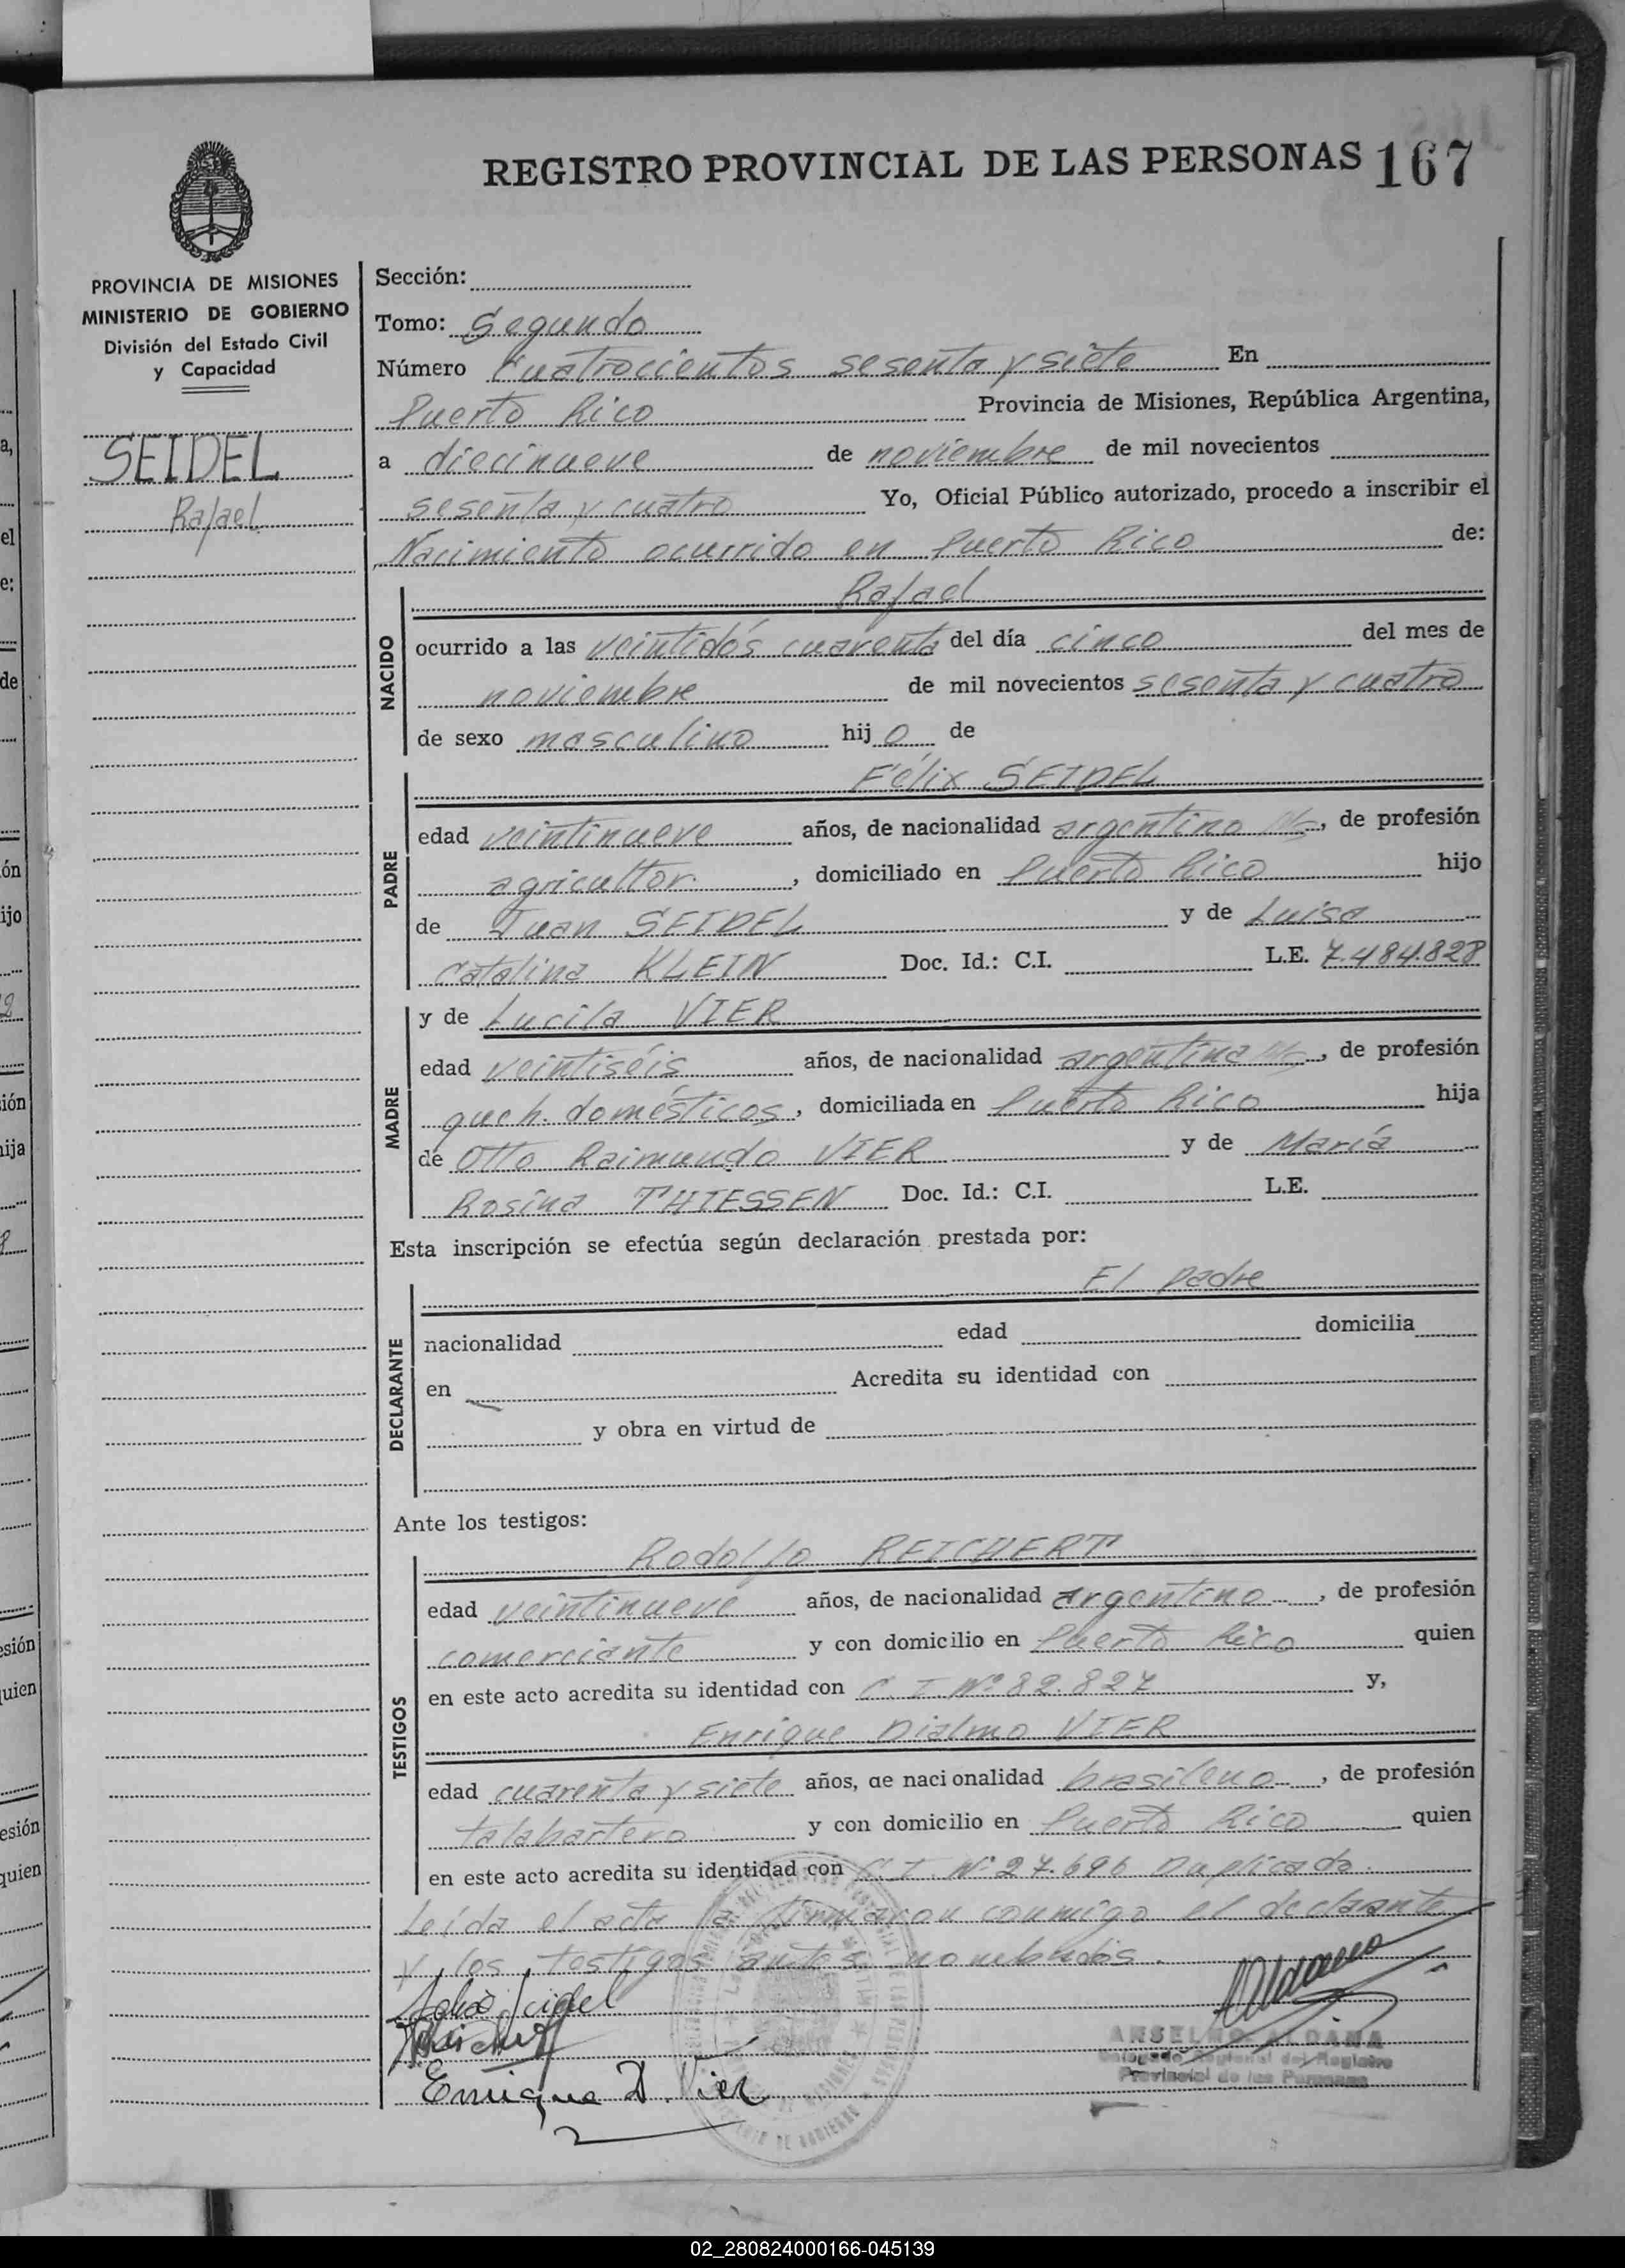 REGISTRO PROVINCIAL DE LAS PERSONAS 167
PROVINCIA DE MISIONES
MINISTERIO DE GOBIERNO
División del Estado Civil
y Capacidad
SEIDEL
Rafael
Sección:
Tomo: Segundo
Número Cuatrocientos sesenta y siete En
Puerto Rico Provincia de Misiones, República Argentina,
a diecinueve de noviembre de mil novecientos
sesenta y cuatro Yo, Oficial Público autorizado, procedo a inscribir el
Nacimiento ocurrido en Puerto Rico de:
NACIDO
Rafael
ocurrido a las veintidós cuarenta del día cinco del mes de
noviembre de mil novecientos sesenta y cuatro
de sexo masculino hijo de
PADRE
Félix SEIDEL
edad veintinueve años, de nacionalidad argentino, de profesión
agricultor, domiciliado en Puerto Rico hijo
de Juan SEIDEL y de Luisa
Catalina KLEIN Doc. Id.: C.I. L.E. 7.484.828
MADRE
y de Lucila VIER
edad veintiséis años, de nacionalidad argentina, de profesión
queh. domésticos, domiciliada en Puerto Rico hija
de Otto Raimundo VIER y de María
Rosina THIESSEN Doc. Id.: C.I. L.E.
Esta inscripción se efectúa según declaración prestada por:
DECLARANTE
El padre
nacionalidad edad domicilia
en Acredita su identidad con
y obra en virtud de
Ante los testigos:
TESTIGOS
Rodolfo REICHERT
edad veintinueve años, de nacionalidad argentino, de profesión
comerciante y con domicilio en Puerto Rico quien
en este acto acredita su identidad con C. I. Nº 82.827 y,
Enrique Dialmo VIER
edad cuarenta y siete años, de nacionalidad brasileno, de profesión
talabartero y con domicilio en Puerto Rico quien
en este acto acredita su identidad con C. I. Nº 27.696 Duplicado.
Leída el acta la firmaron conmigo el declarante
y los testigos antes nombrados.
Felix Seidel
Reichert
Enrique D. Vier
AAldana
ANSELMO ALDANA
Delegado Regional del Registro
Provincial de las Personas
02_280824000166-045139